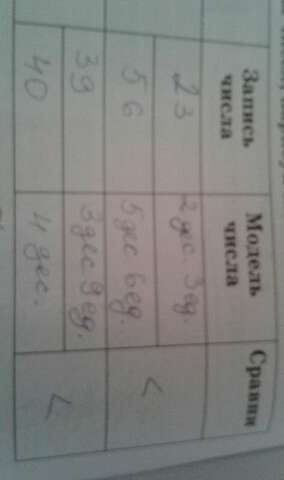 Запись числа | Модель числа | Сравни
23 | 2 дес. 3 ед. | <
56 | 5 дес 6 ед.
39 | 3 дес 9 ед. | <
40 | 4 дес.